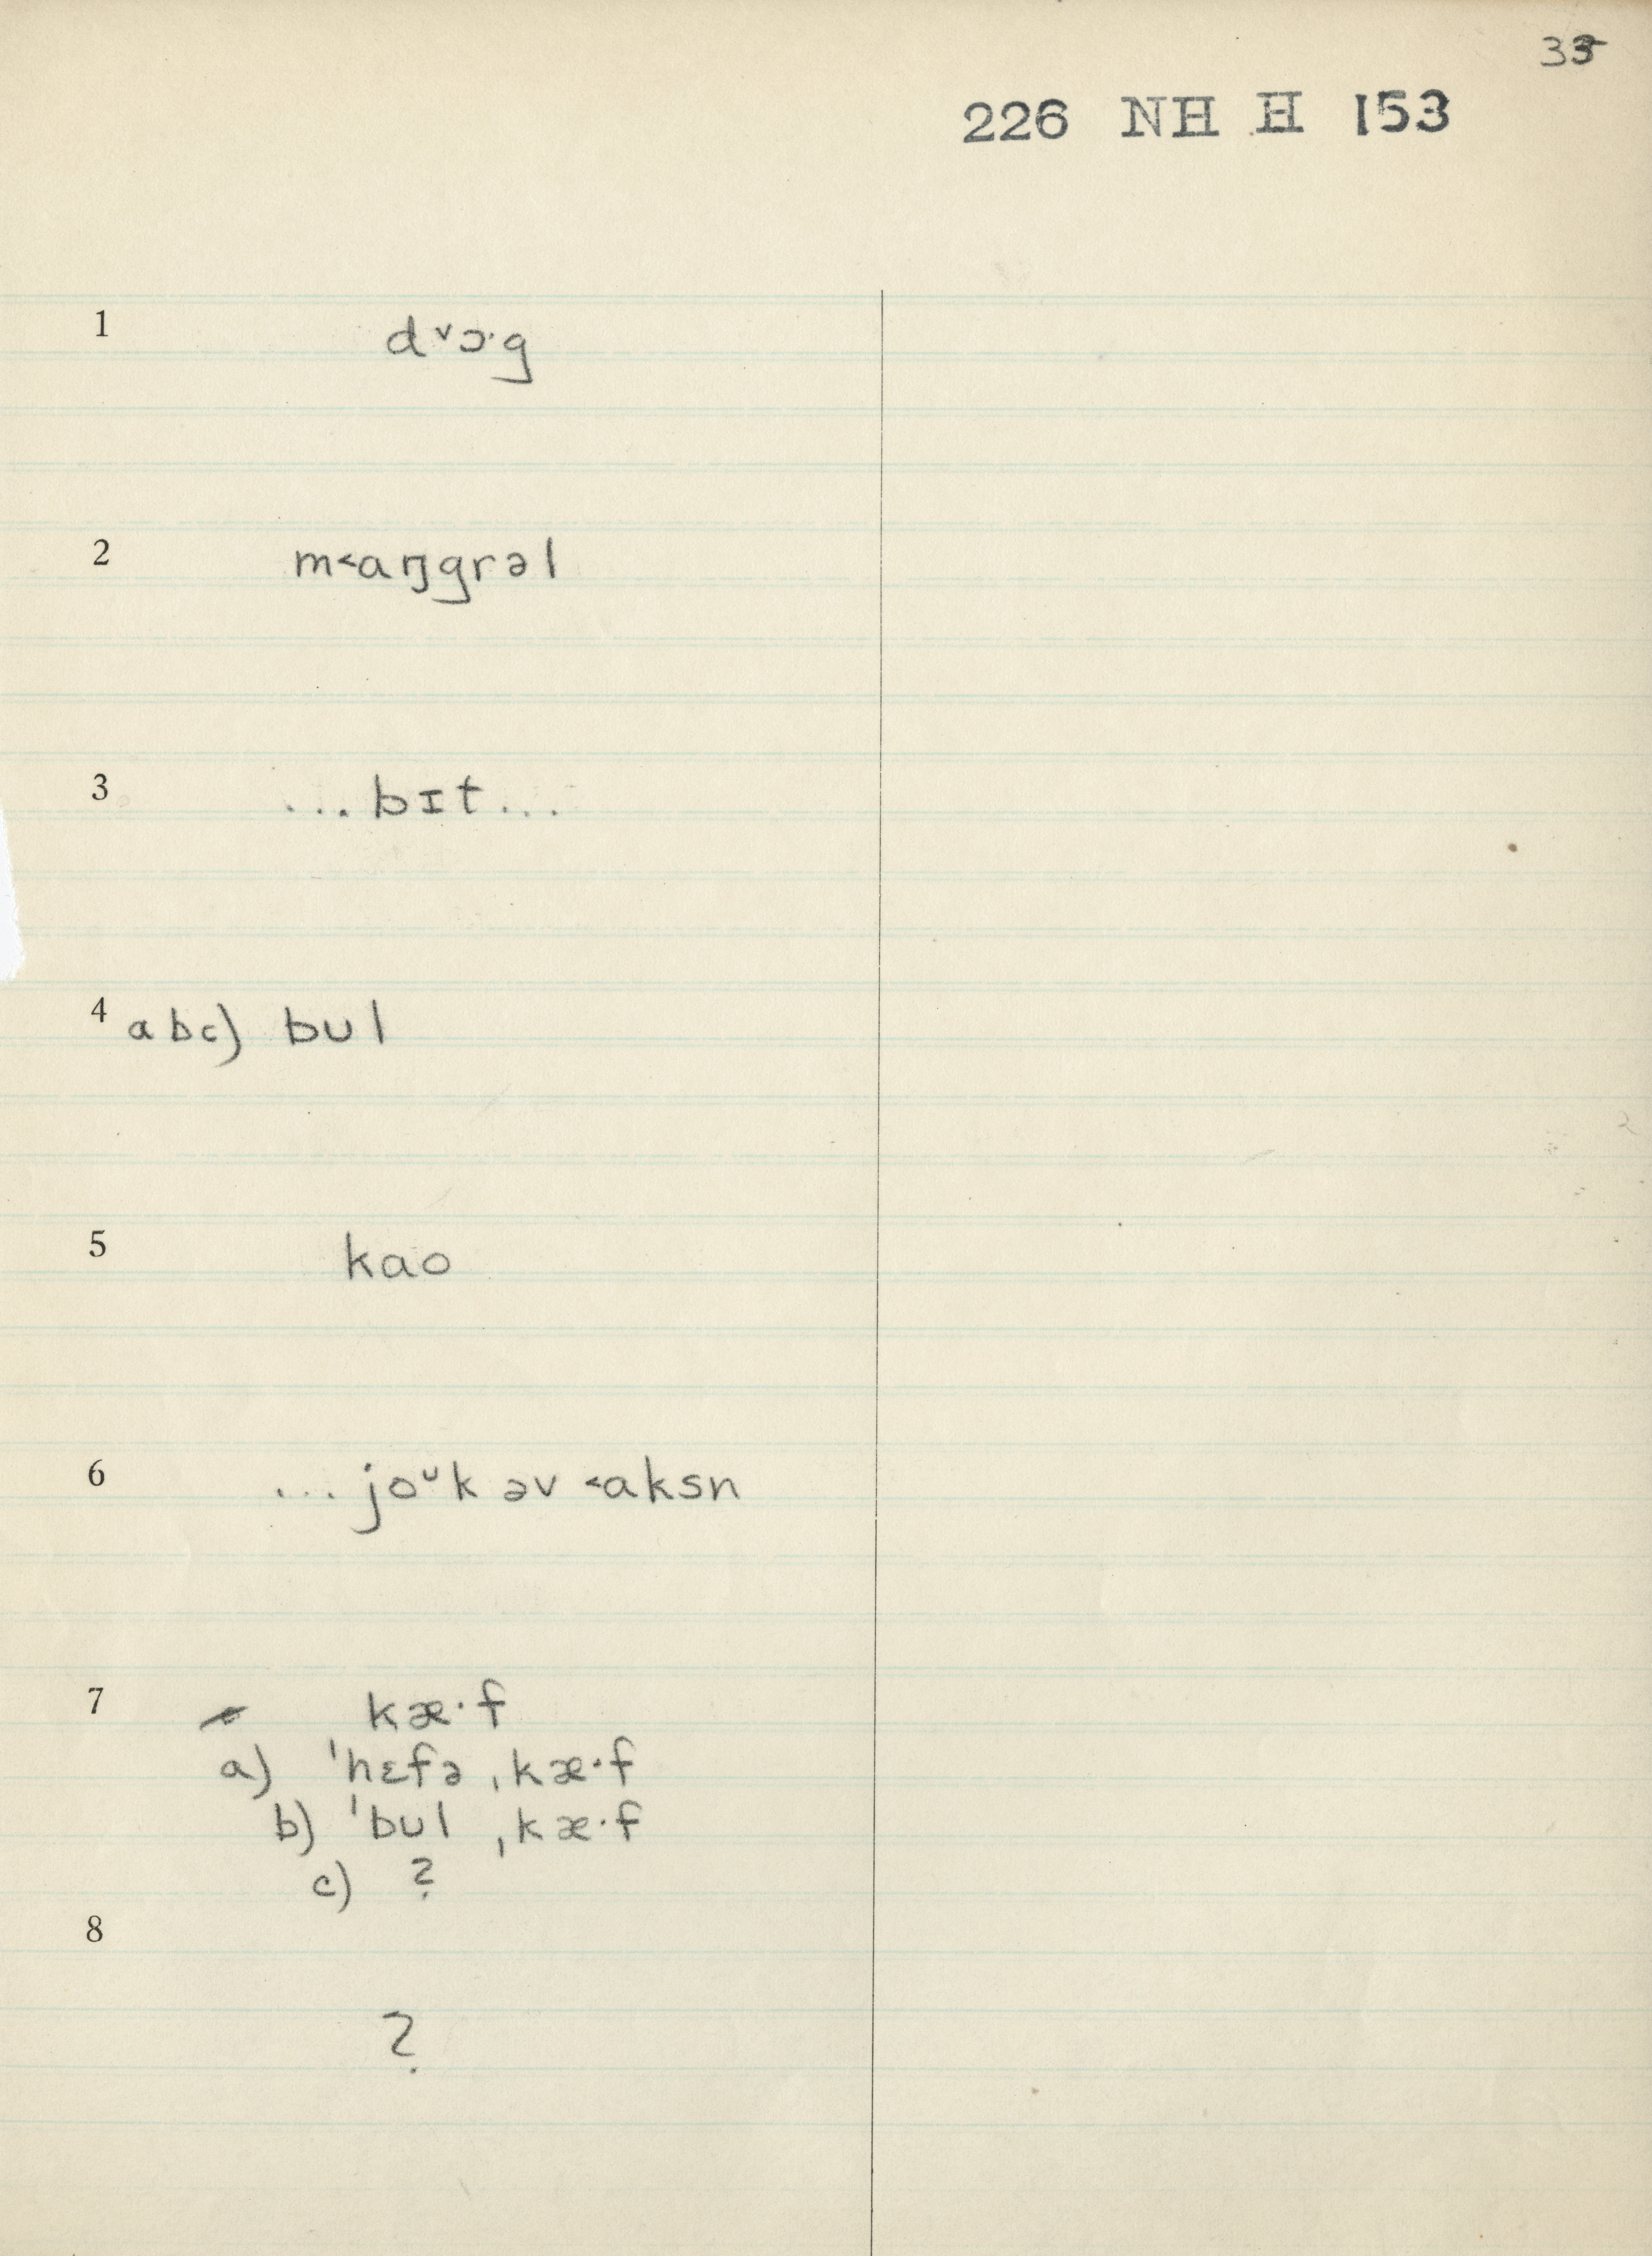 33
226 NH H 153
1 dˇɔ·g
2 m˂aŋgrəl
3 ...bɪt...
4 abc) bul
5 kao
6 ...joᵘk əv ˂aksn
7 kæ·f
a) ˈhɛfə ˌkæ·f
b) ˈbul ˌkæ·f
c) ?
8
?